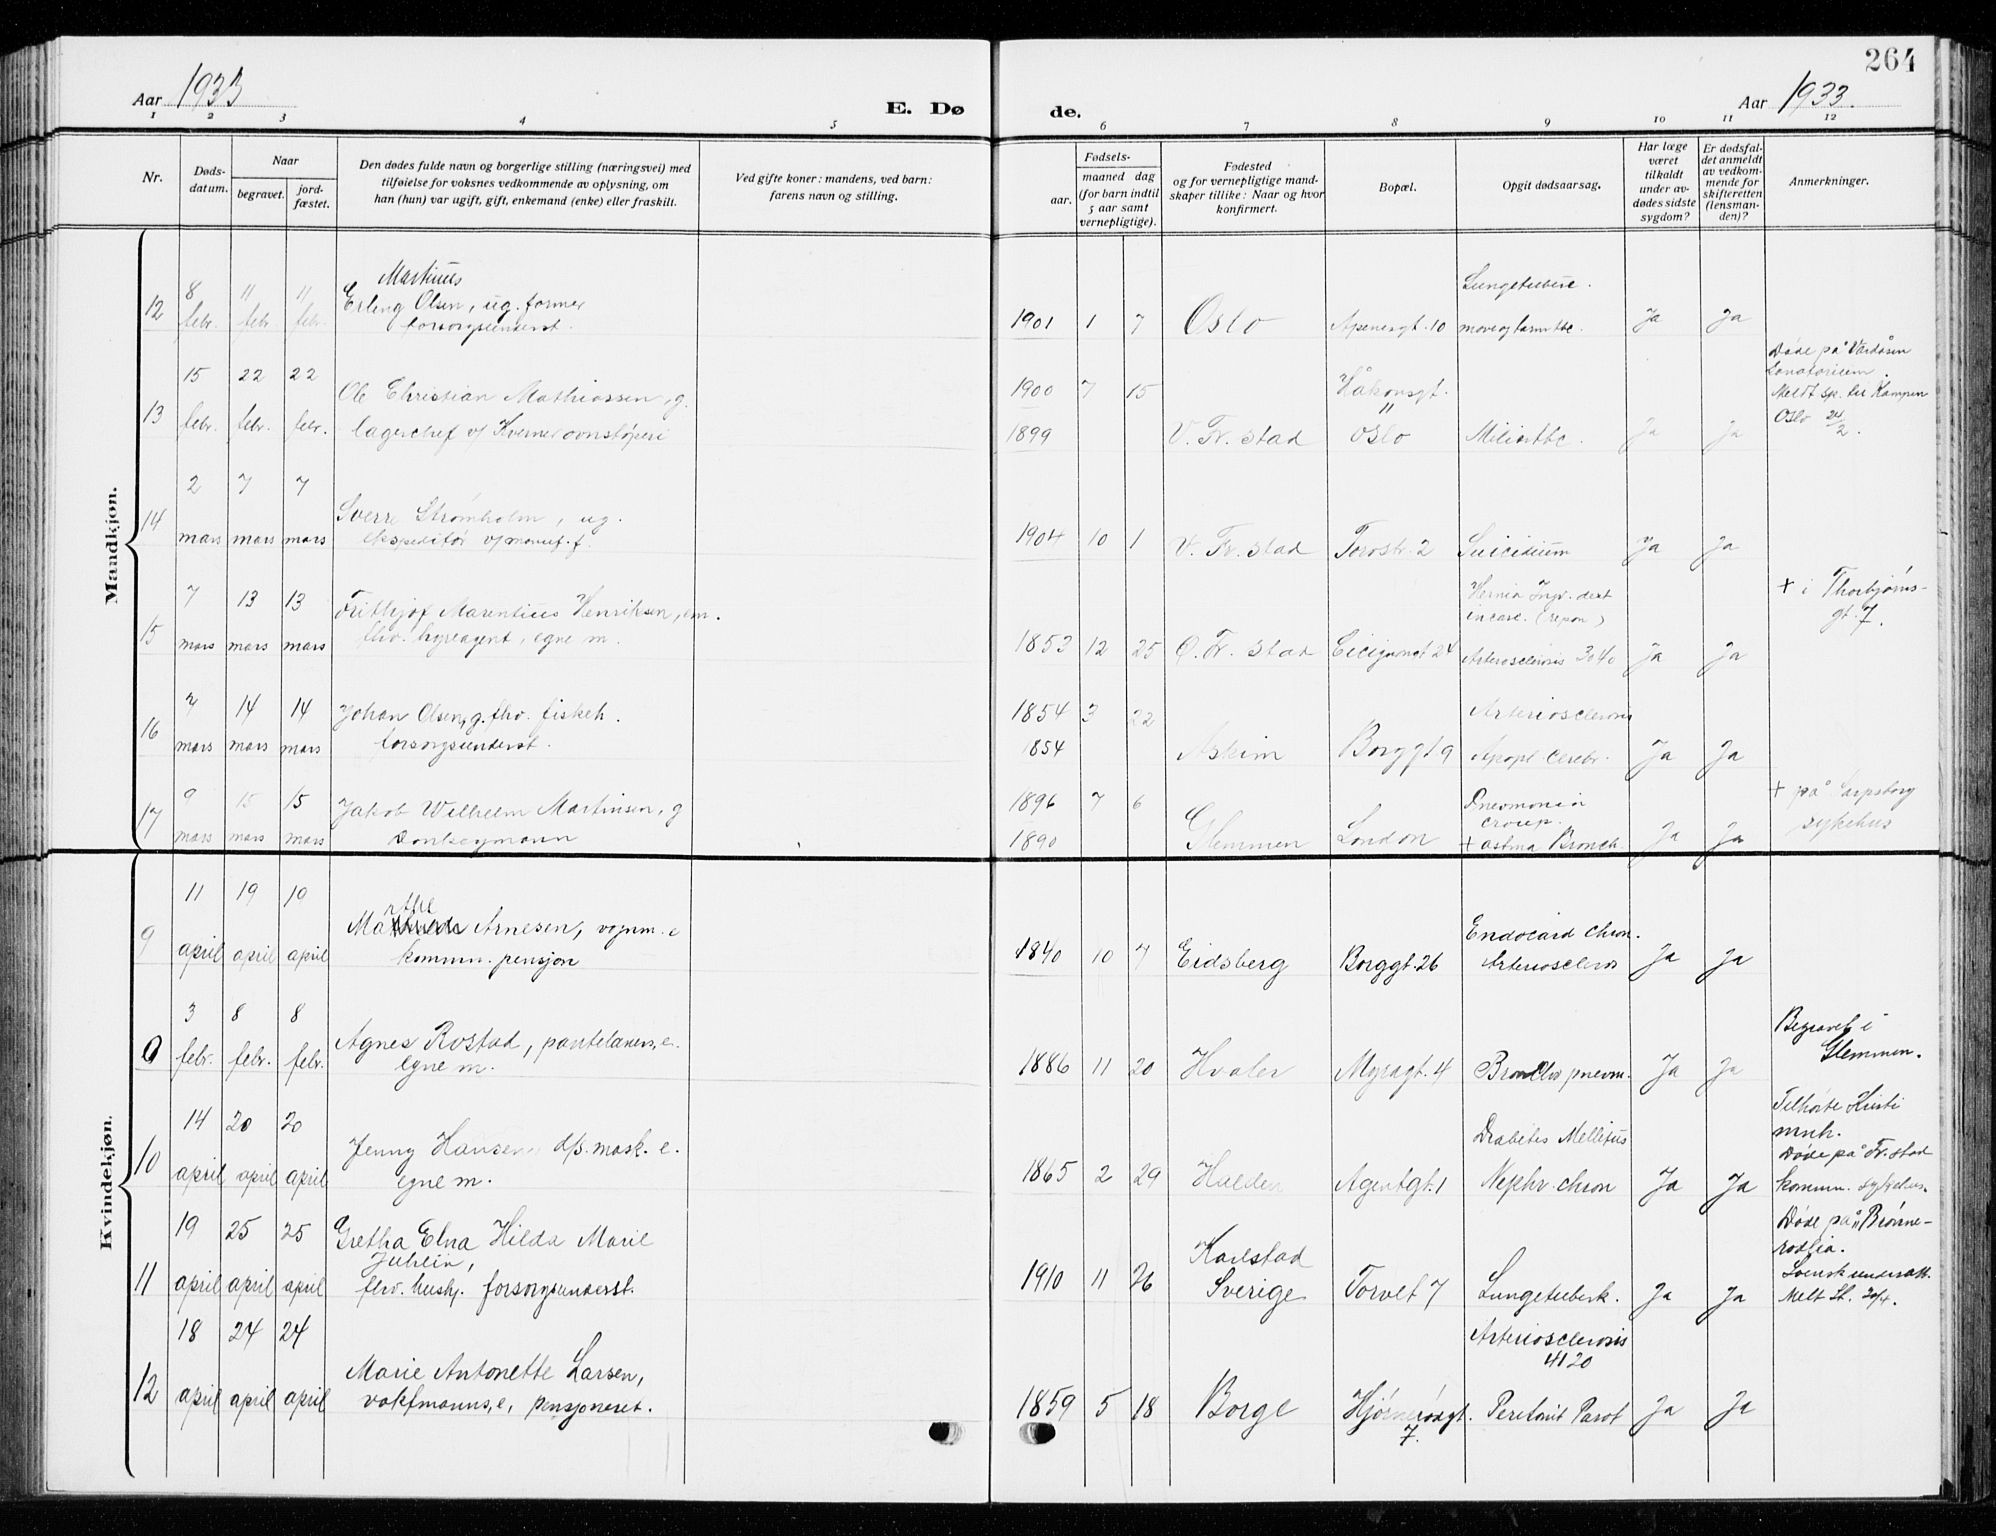 264
Aar 1933
E. Dø
de.
Aar 1933.
1 2 3 4 5 6 7 8 9 10 11 12
Nr.
Døds-
datum.
Naar
begravet.
jord-
fæstet.
Den dødes fulde navn og borgerlige stilling (næringsvei) med
tilføielse for voksnes vedkommende av oplysning, om
han (hun) var ugift, gift, enkemand (enke) eller fraskilt.
Ved gifte koner: mandens, ved barn:
farens navn og stilling.
Fødsels-
aar.
maaned dag
(for barn indtil
5 aar samt
vernepligtige).
Fødested
og for vernepligtige mand-
skaper tillike: Naar og hvor
konfirmert.
Bopæl.
Opgit dødsaarsag.
Har læge
været
tilkaldt
under av-
dødes sidste
sygdom?
Er dødsfal-
det anmeldt
av vedkom-
mende for
skifteretten
(lensman-
den)?
Anmerkninger.
Mandkjøn.
Martinus
12 8 febr. 11 febr. 11 febr. Erling Olsen, ug. former
forsorgsunderst.
1901 1 7 Oslo Apenesgt. 10 Ja Ja
13 15 febr. 22 febr. 22 febr. Ole Christian Mathiassen, g.
lagerchef v/ Kværner ovnstøperi
1900 7 15
1899 V. Fr. stad Håkonsgt. " Oslo Miliærtbc. Ja Ja
Døde på Vardåsen
Sanatorium.
Meldt sp. til Kampen
Oslo 24/2.
14 2 mars 7 mars 7 mars Sverre Strømholm, ug.
ekspeditør v/ manuf. f.
1904 10 1 V. Fr. stad Torvstr. 2 Suicidium Ja Ja
15 7 mars 13 mars 13 mars Frithjof Marentius Henriksen, em.
fhv. hyreagent, egne m.
1853 12 25 Ø. Fr. stad Cicignongt 24 Hernia Ingv. dext
incarc. (repon)
Arteriosclerosis 3040 Ja Ja
+ i Thorbjørns-
gt. 7.
16 7 mars 14 mars 14 mars Johan Olsen, g. fhv. fiskeh.
forsorgsunderst.
1854 3 22
1854 Askim Borggt 9 Arteriosclerosis
Apopl. cerebr. Ja Ja
17 9 mars 15 mars 15 mars Jakob Wilhelm Martinsen, g
Donkeymann
1896 7 6
1890 Glemmen London Pneumonia
croup.
+ astma Bronch. Ja Ja
+ på Sarpsborg
sykehus
Kvindekjøn.
9 11 april 19 april 19 april Marthe Arnesen, vognm. e
komm. pensjon
1840 10 7 Eidsberg Borggt. 26 Endocard chron.
Arteriosclerosis Ja Ja
0 3 febr. 8 febr. 8 febr. Agnes Rostad, pantelåners, e.
egne m.
1886 11 20 Hvaler Myragt. 4 Broncho pneum. Ja Ja
Begravet i
Glemmen.
10 14 april 20 april 20 april Jenny Hansen d/s. mask. e.
egne m.
1865 2 29 Halden Agentgt. 1 Diabetes Mellitus
Nephr. chron Ja Ja
Tilhørte Kristi
mnh.
Døde på Fr. stad
komm. sykehus.
11 19 april 25 april 25 april Gretha Elna Hilda Marie
Juhlin,
fhv. hush. forsorgsunderst.
1910 11 26 Karlstad
Sverige Torvet 7 Lungetuberk. Ja Ja
Døde på "Brønne-
rødlia.
Svensk undersått.
Meldt St. 20/4.
12 18 april 24 april 24 april Marie Antonette Larsen,
vaktmanns, e, pensjoneret.
1859 5 18 Borge Hjørnerødgt.
7. Arteriosclerosis
4120
Peretonit Parot Ja Ja